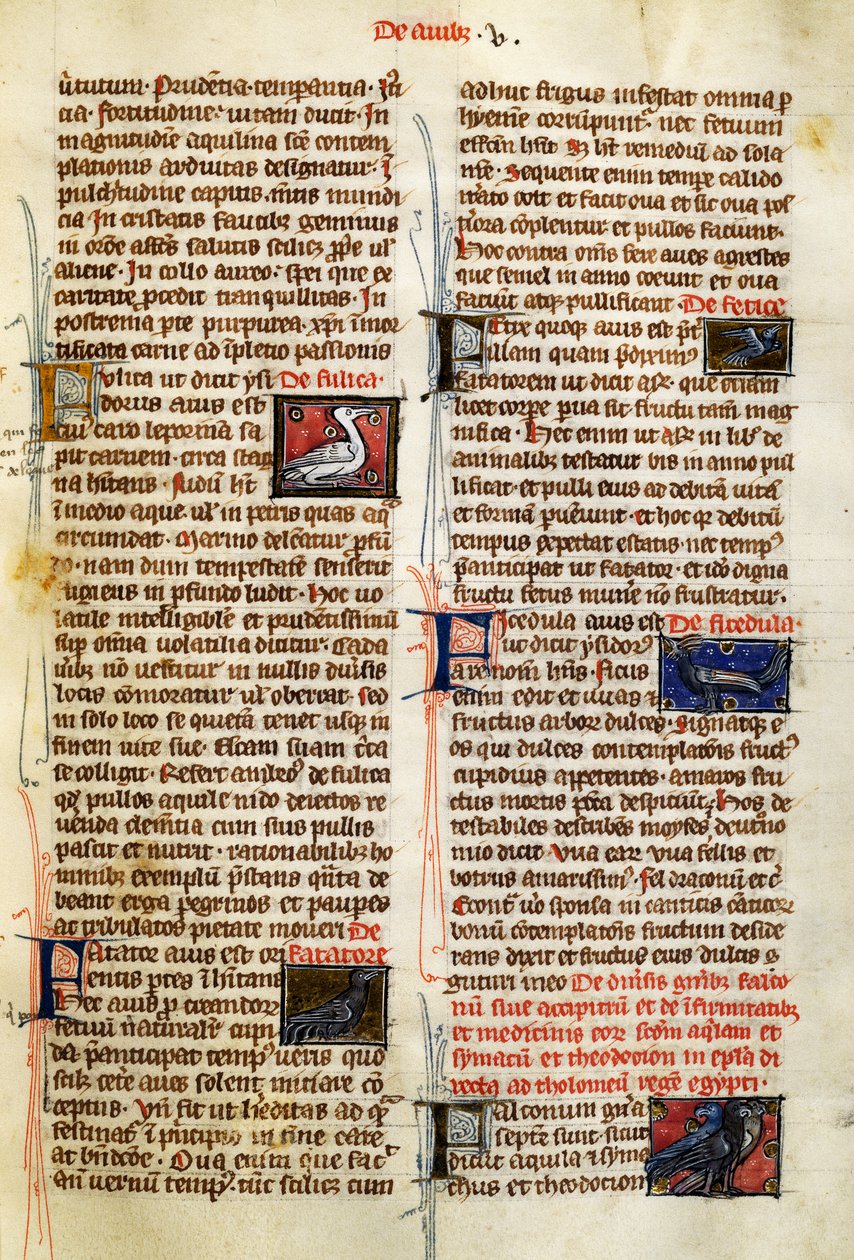 De auibꝫ · v ·
ūtutum · Prudētia · temꝑantia · Iusti
cia · fortitudine · uitam ducit · In
magnitudīe aquilina scē contem
plationis arduitas designatur · ī
pulchͥtudine capitis · mͤtis mundi
cia In cristatis faucibꝫ geminus
in orōe affcͥs salutis scilicꝫ ꝓpͥe ul̕
aliene · In collo aureo · spei que ex
caritate ꝓcedit tranquillitas · In
postrema ꝑte purpurea · xp̄i īmor
tificata carne ad īpletio passionis
Fulica ut dicit ysi De fulica ·
dorus auis est
cui᷒ caro leporinā sa
pit carnem · circa stag
na hītans · Nidū hꝫ
ī medio aque ul̕ in petris quas aq̄
circumdat · Marino delcͣatur ꝓfū
do · nam dum tempestatē senserit
fugiens in ꝓfundo ludit · Hoc uo
latile intelligibile et prudētissimū
suꝑ omnia uolatilia dicitur · Cada
ūibꝫ nō uescitur in nullis diuͥsis
locis cōmoratur ul̕ oberrat · sed
in solo loco se quietā tenet usqꝫ in
finem uite sue · Escam suam cͥca
se colligit · Refert ambro᷒ de fulica
qd̄ pullos aquile nido deiectos re
uerēda clemētia cum suis pullis
pascit et nutrit · rationabilibꝫ ho
minibꝫ exemplū p̄stans quāta de
beant erga peregrinos et pauperes
at tribulatos pietate moueri De
Fatator auis est ori fatatore
entis ꝑtes īhītans
Hec auis ꝓ creandorꝫ
fetuū nͣaturali cupi
da p̄anticipat temp᷒ ueris quo
scilꝫ cete᷑ aues solent initiare cō
ceptus · Vn̄ fit ut h̕editas ad qͣ
festinat᷑ ī pͥncipio in fine care
at bn̄dcōe · Oua enim que facͥ
an̄ uernū temp᷒ · tūc scilicꝫ cum
adhuc frigus infestat omnia ꝑ
hyemē corrūpunt᷑ nec fetuum
effcm̄ hn̄t · ꝫ hꝫ remediū ad sola
mē · Sequente enim tempe calido
itͤato coit et facit oua et sic oua pos
tͥora cōplentur et pullos faciunt ·
Hoc contra om̄s fere aues agrestes
que semel in anno coeunt et oua
faciūt atqꝫ pullificant · De fetice
Fetix quoqꝫ auis est p̄t
illam quam p̄dixim᷒
fatatorem ut dicit aꝶ · que etiam
licet corꝑe ꝑua sit fructu tam mag
nifica · Hec enim ut aꝶ in lib᷑ de
animalibꝫ testatur bis in anno pul
lificat · et pulli eius ad debitā uitā
et formā ꝑueniunt · et hoc qꝛ debitū
tempus expectat estatis · nec temp᷒
p̄anticipat ut fatator · et ido digna
fructu fetus mun̄e nō frustratur ·
Ficedula auis est De ficedula ·
ut dicit ysidor᷒
a re nom̄ hn̄s · ficus
enim edit et uuas ⁊
fructus arborꝫ dulces · Signatqꝫ e
os qui dulces contemplatōis fruct᷒
cupidius appetentes · amaros fru
ctus mortis pͦcͣa despiciūt · Hos de
testabiles describēs moyses deutōno
mio dicit · Vua earꝫ uua fellis et
botrus amarissim᷒ · Fel draconū et cͣ
Econtͣ uͦo sponsa in canticis cāticorꝫ
bonū cōtemplatōis fructum deside
rans dixit et fructus eius dulcis g
guturi meo De diuͥsis gn̄ibꝫ falco
nū siue accipitrū et de īfirmitatibꝫ
et medicinis eorꝫ scdm̄ aq̄lam et
symacū et theodocion in epl̄a di
recta ad tholomeū regē egypti ·
Falconum gn̄a
septē sunt · sicut
dicūt aquila ⁊ syma
chus et theodocion